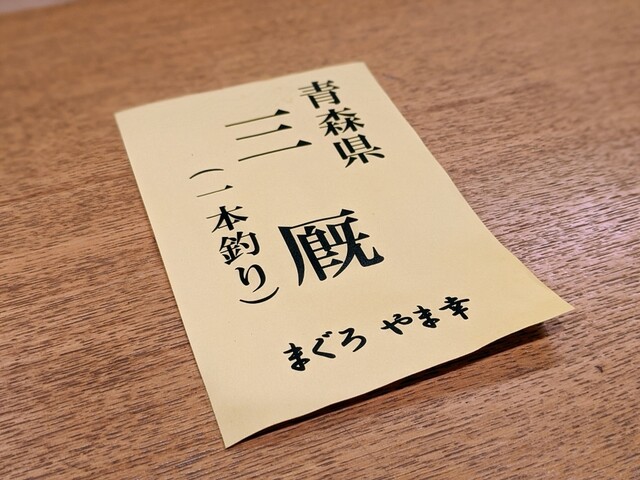 青森県
三厩
(一本釣り)
まぐろ やま幸